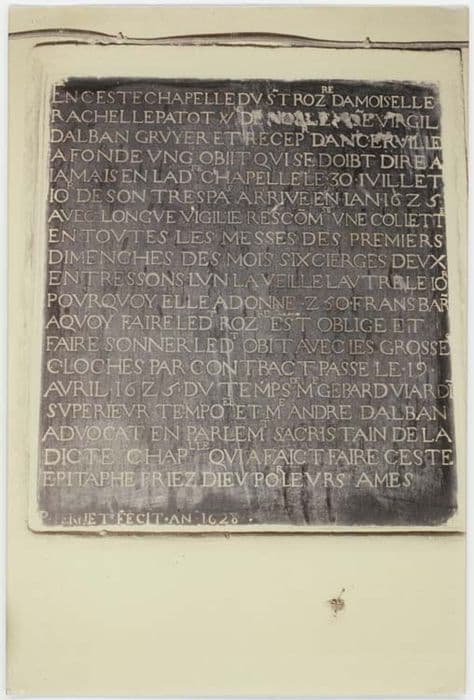 EN CESTE CHAPELLE DV S̃T ROZRE DAMOISELLE
RACHELLE PATOT DE NOBLE VIRGIL
DALBAN GRVYER ET RECEP DANCERVILLE
A FONDE VNG OBIIT QVI SE DOIBT DIRE A
IAMAIS EN LAD CHAPELLE LE 30 IVILLET
IOR DE SON TRESPA ARRIVE EN LAN 1625
AVEC LONGVE VIGILIE RECOM VNE COLIETTE
EN TOVTES LES MESSES DES PREMIERS
DIMENCHES DES MOIS SIX CIERGES DEVX
ENTRESSONS LVN LA VEILLE LAVTRE LE IOR
POVRQVOY ELLE A DONNE 250 FRANS BAR
A QVOY FAIRE LED ROZRE EST OBLIGE ET
FAIRE SONNER LEDT OBIT AVEC LES GROSSE
CLOCHES PAR CONTRACT PASSE LE · 19 ·
AVRIL 1625 DV TEMPS DE MR GERARD VIARD
SVPERIEVR TEMPOL ET MR ANDRE DALBAN
ADVOCAT EN PARLEMT SACRISTAIN DE LA
DICTE CHAPLLE QVI A FAICT FAIRE CESTE
EPITAPHE PRIEZ DIEV POR LEVRS AMES
FECIT · AN 1628 ·